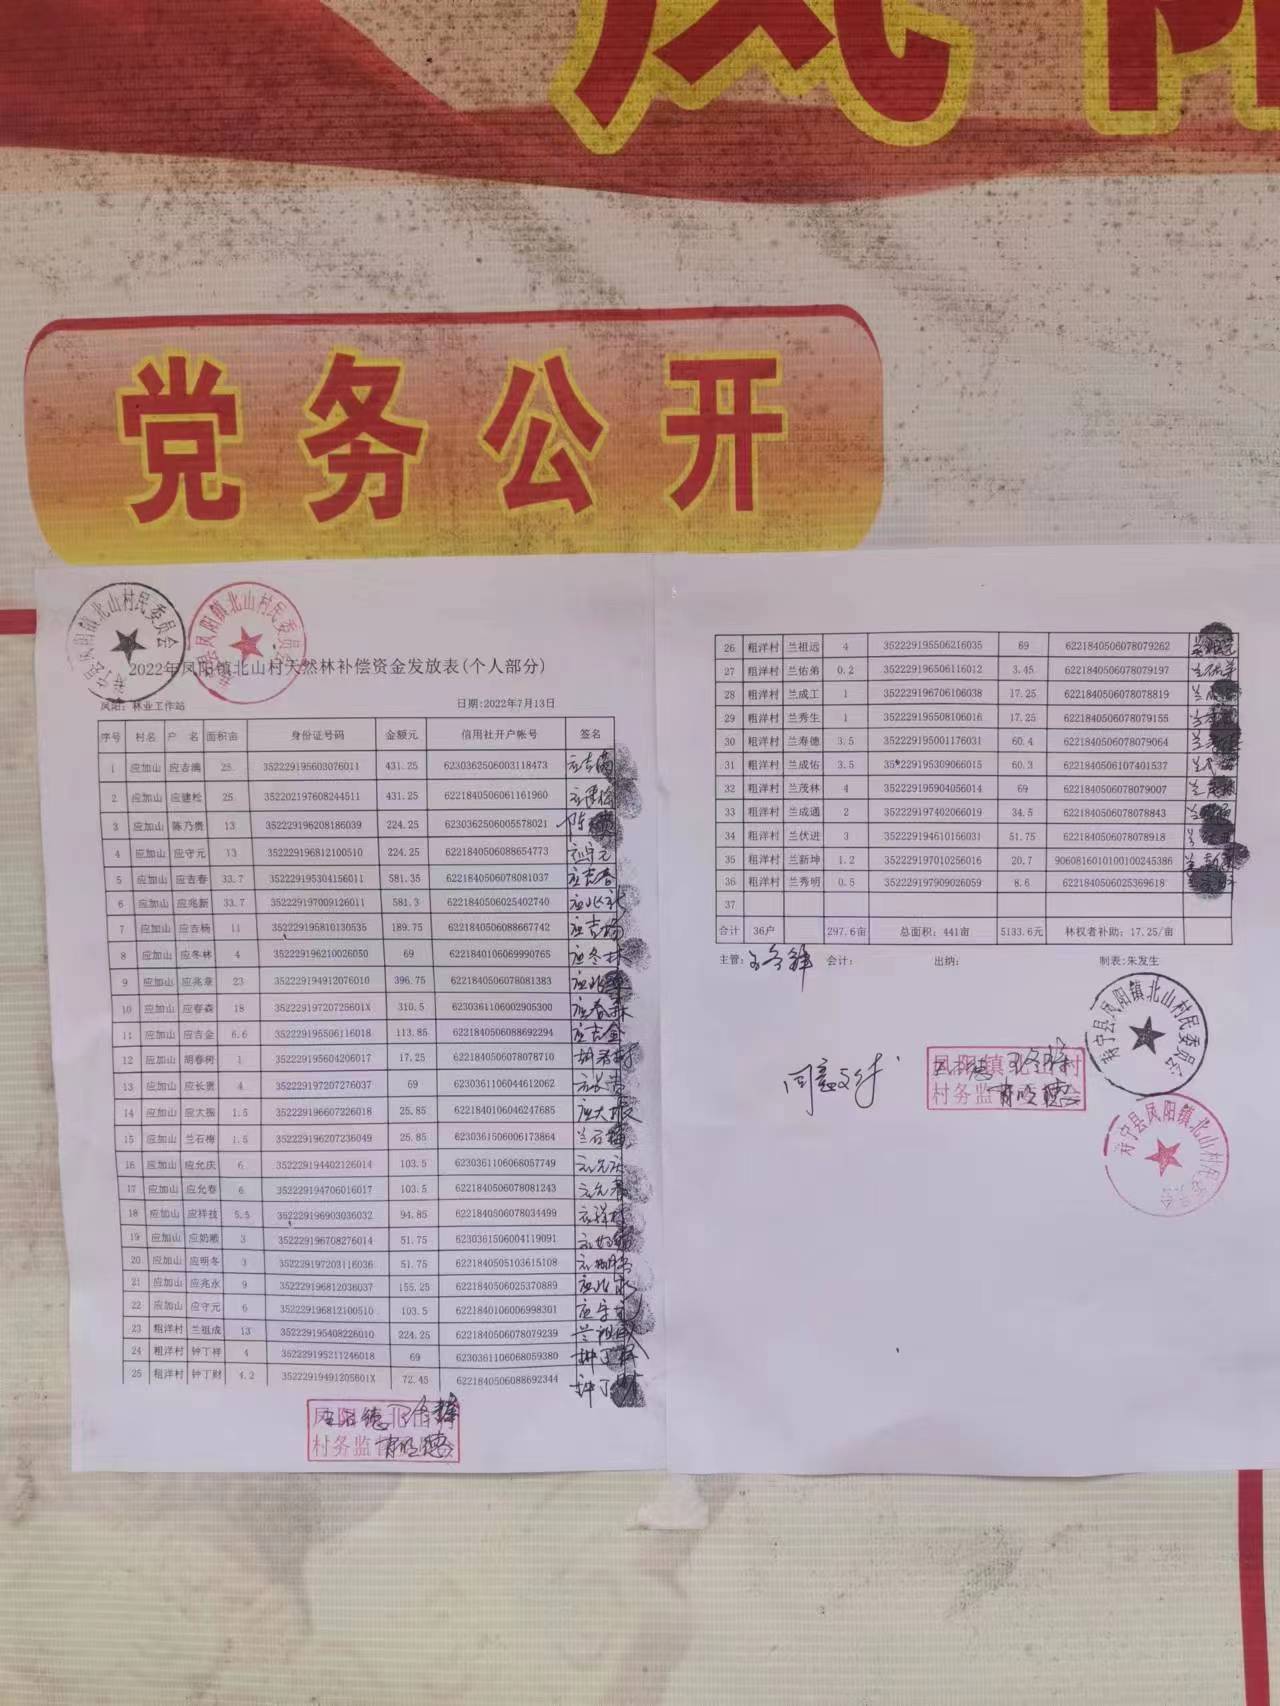 凤阳
党务公开
寿宁县凤阳镇北山村民委员会
寿宁县凤阳镇北山村民委员会
2022年凤阳镇北山村天然林补偿资金发放表(个人部分)
凤阳: 林业工作站 日期:2022年7月13日
序号 村名 户 名 面积亩 身份证号码 金额元 信用社开户帐号 签名
1 应加山 应吉满 25 352229195603076011 431.25 6230362506003118473 应吉满
2 应加山 应建松 25 352202197608244511 431.25 6221840506061161960
3 应加山 陈乃贵 13 352229196208186039 224.25 6230362506005578021
4 应加山 应守元 13 352229196812100510 224.25 6221840506088654773 应守元
5 应加山 应吉春 33.7 352229195304156011 581.35 6221840506078081037 应吉春
6 应加山 应兆新 33.7 352229197009126011 581.3 6221840506025402740
7 应加山 应吉杨 11 352229195810130535 189.75 6221840506088667742
8 应加山 应冬林 4 352229196210026050 69 6221840106069990765 应冬林
9 应加山 应兆康 23 352229194912076010 396.75 6221840506078081383
10 应加山 应春森 18 35222919720725601X 310.5 6230361106002905300 应春森
11 应加山 应吉金 6.6 352229195506116018 113.85 6221840506088692294 应吉金
12 应加山 胡春树 1 352229195604206017 17.25 6221840506078078710
13 应加山 应长贵 4 352229197207276037 69 6230361106044612062
14 应加山 应大振 1.5 352229196607226018 25.85 6221840106046247685 应大振
15 应加山 兰石梅 1.5 352229196207236049 25.85 6230361506006173864 兰石梅
16 应加山 应允庆 6 352229194402126014 103.5 6230361106068057749
17 应加山 应允春 6 352229194706016017 103.5 6221840506078081243
18 应加山 应祥技 5.5 352229196903036032 94.85 6221840506078034499
19 应加山 应奶顺 3 352229196708276014 51.75 6230361506004119091
20 应加山 应明冬 3 352229197203116036 51.75 6221840505103615108
21 应加山 应兆永 9 352229196812036037 155.25 6221840506025370889
22 应加山 应守元 6 352229196812100510 103.5 6221840106006998301
23 粗洋村 兰祖成 13 352229195408226010 224.25 6221840506078079239
24 粗洋村 钟丁祥 4 352229195211246018 69 6230361106068059380
25 粗洋村 钟丁财 4.2 35222919491205601X 72.45 6221840506088692344
凤阳镇北山村
村务监督委员会
26 粗洋村 兰祖远 4 352229195506216035 69 6221840506078079262
27 粗洋村 兰佑弟 0.2 352229196506116012 3.45 6221840506078079197
28 粗洋村 兰成工 1 352229196706106038 17.25 6221840506078078819
29 粗洋村 兰秀生 1 352229195508106016 17.25 6221840506078079155
30 粗洋村 兰寿德 3.5 352229195001176031 60.4 6221840506078079064
31 粗洋村 兰成佑 3.5 352229195309066015 60.3 6221840506107401537
32 粗洋村 兰茂林 4 352229195904056014 69 6221840506078079007
33 粗洋村 兰成通 2 352229197402066019 34.5 6221840506078078843
34 粗洋村 兰伏进 3 352229194610156031 51.75 6221840506078078918
35 粗洋村 兰新坤 1.2 352229197010256016 20.7 9060816010100100245386
36 粗洋村 兰秀明 0.5 352229197909026059 8.6 6221840506025369618
37
合计 36户 297.6亩 总面积: 441亩 5133.6元 林权者补助: 17.25/亩
主管: 会计: 出纳: 制表:朱发生
寿宁县凤阳镇北山村民委员会
同意支付
凤阳镇北山村
村务监督委员会
寿宁县凤阳镇北山村民委员会